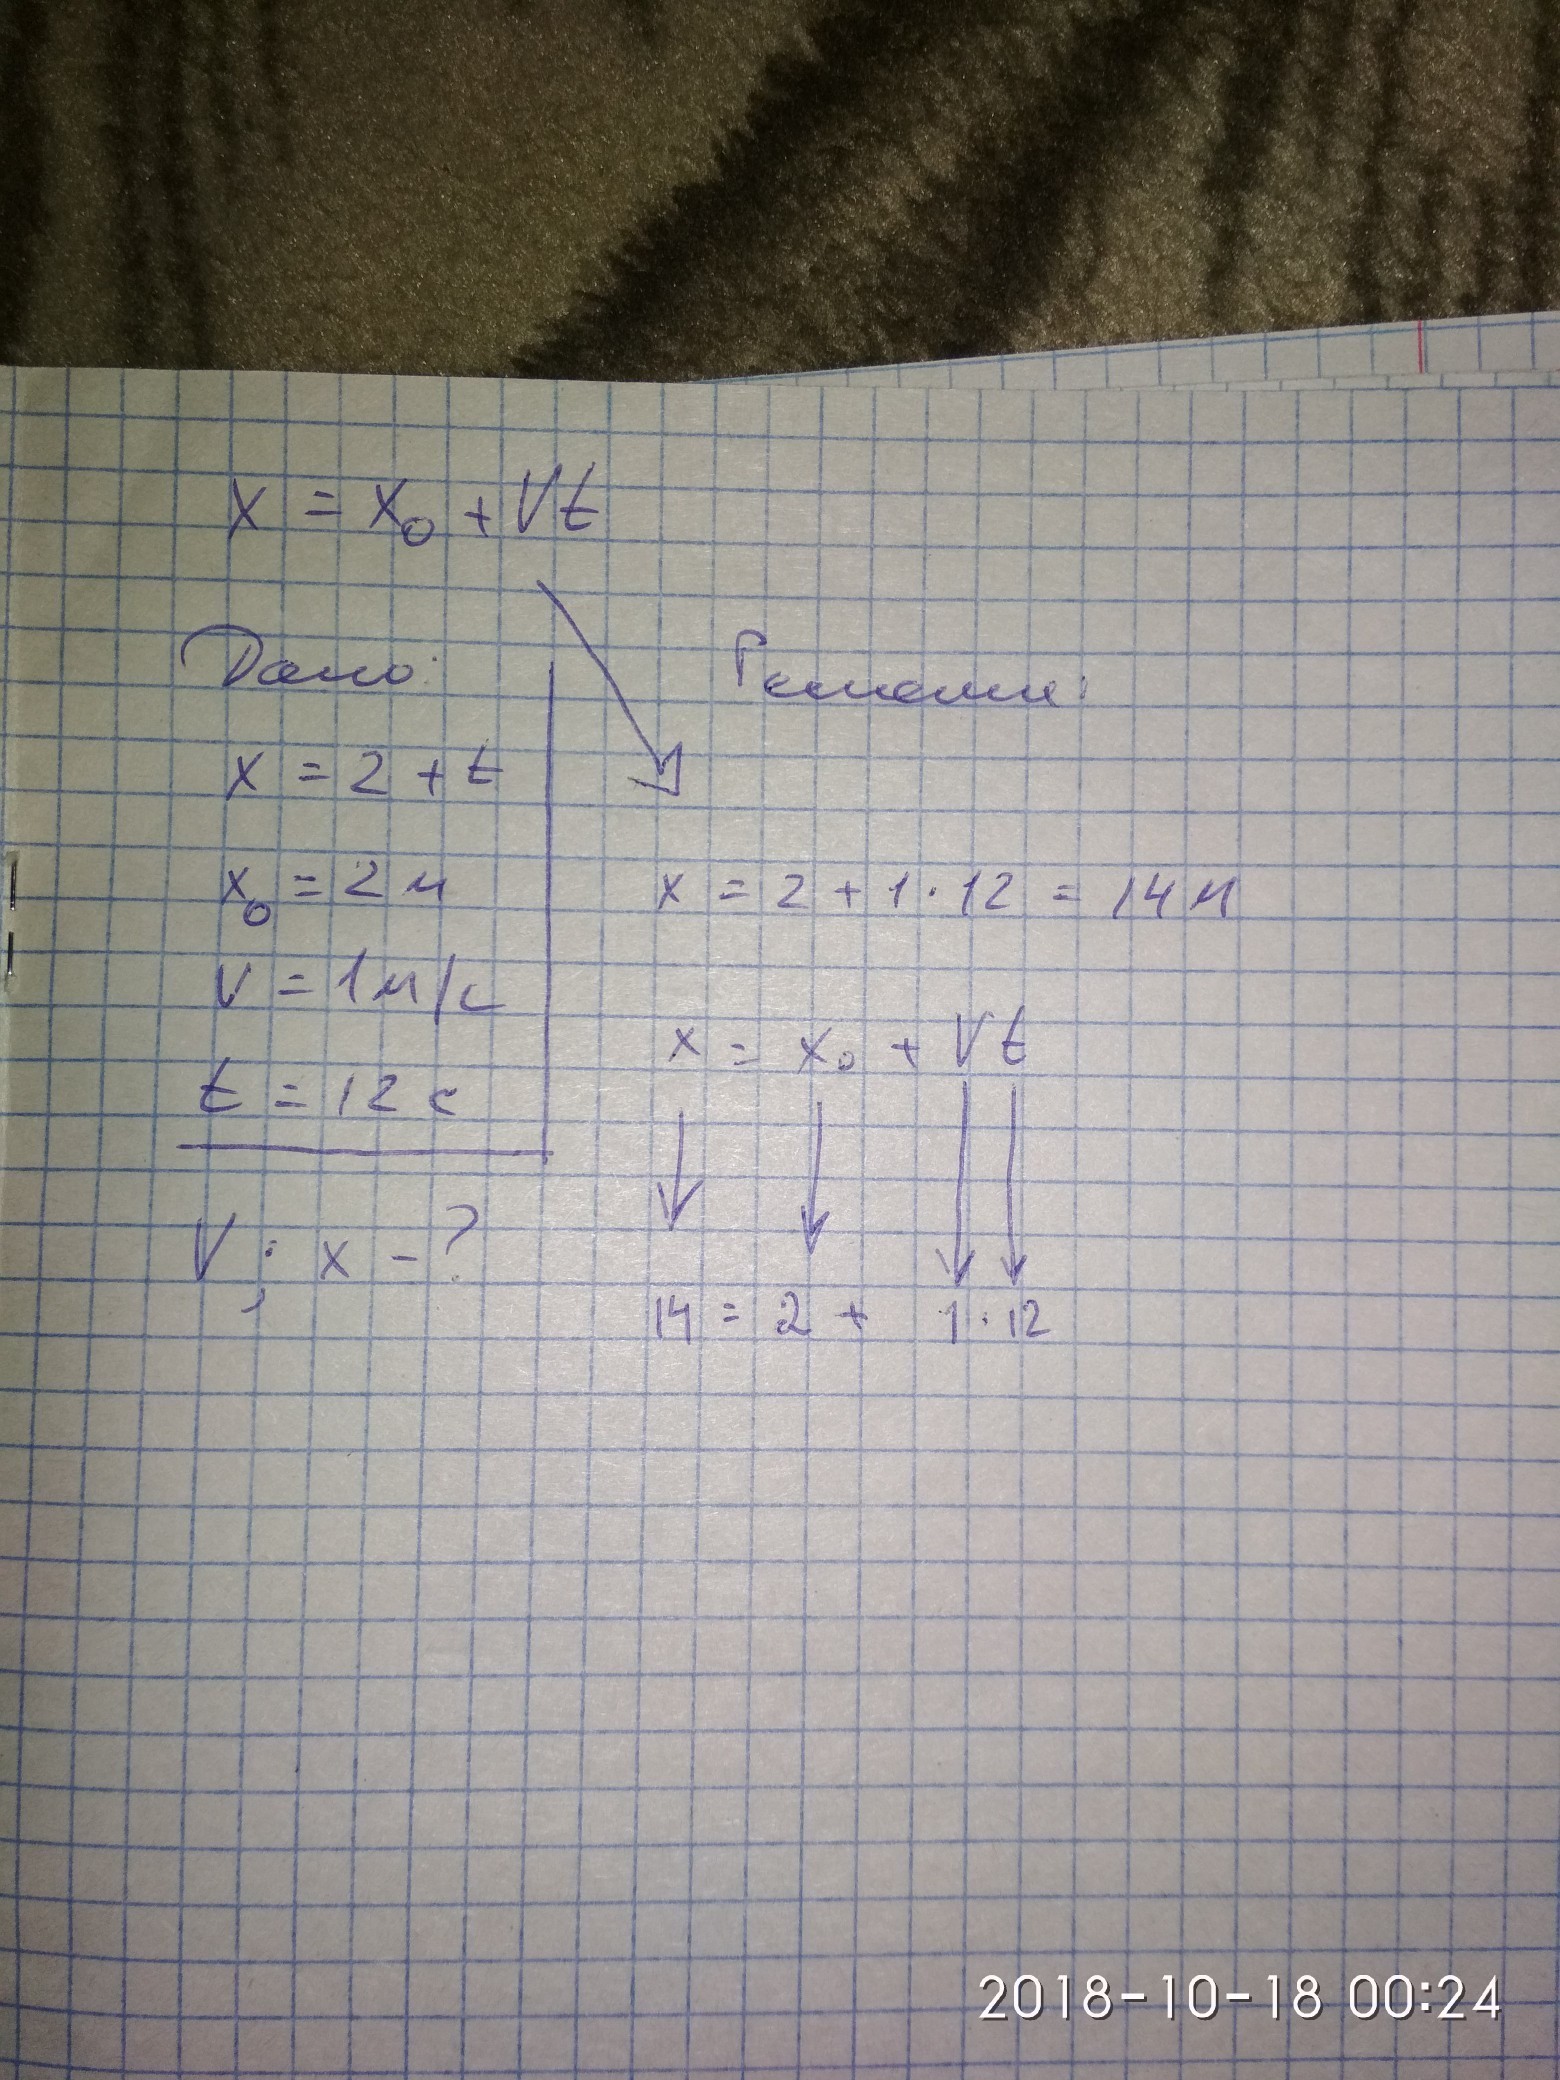 x = x₀ + Vt
Дано:
x = 2 + t
x₀ = 2 м
V = 1 м/с
t = 12 с
V ; x - ?
Решение:
x = 2 + 1 · 12 = 14 м
x = x₀ + Vt
14 = 2 + 1 · 12
2018-10-18 00:24